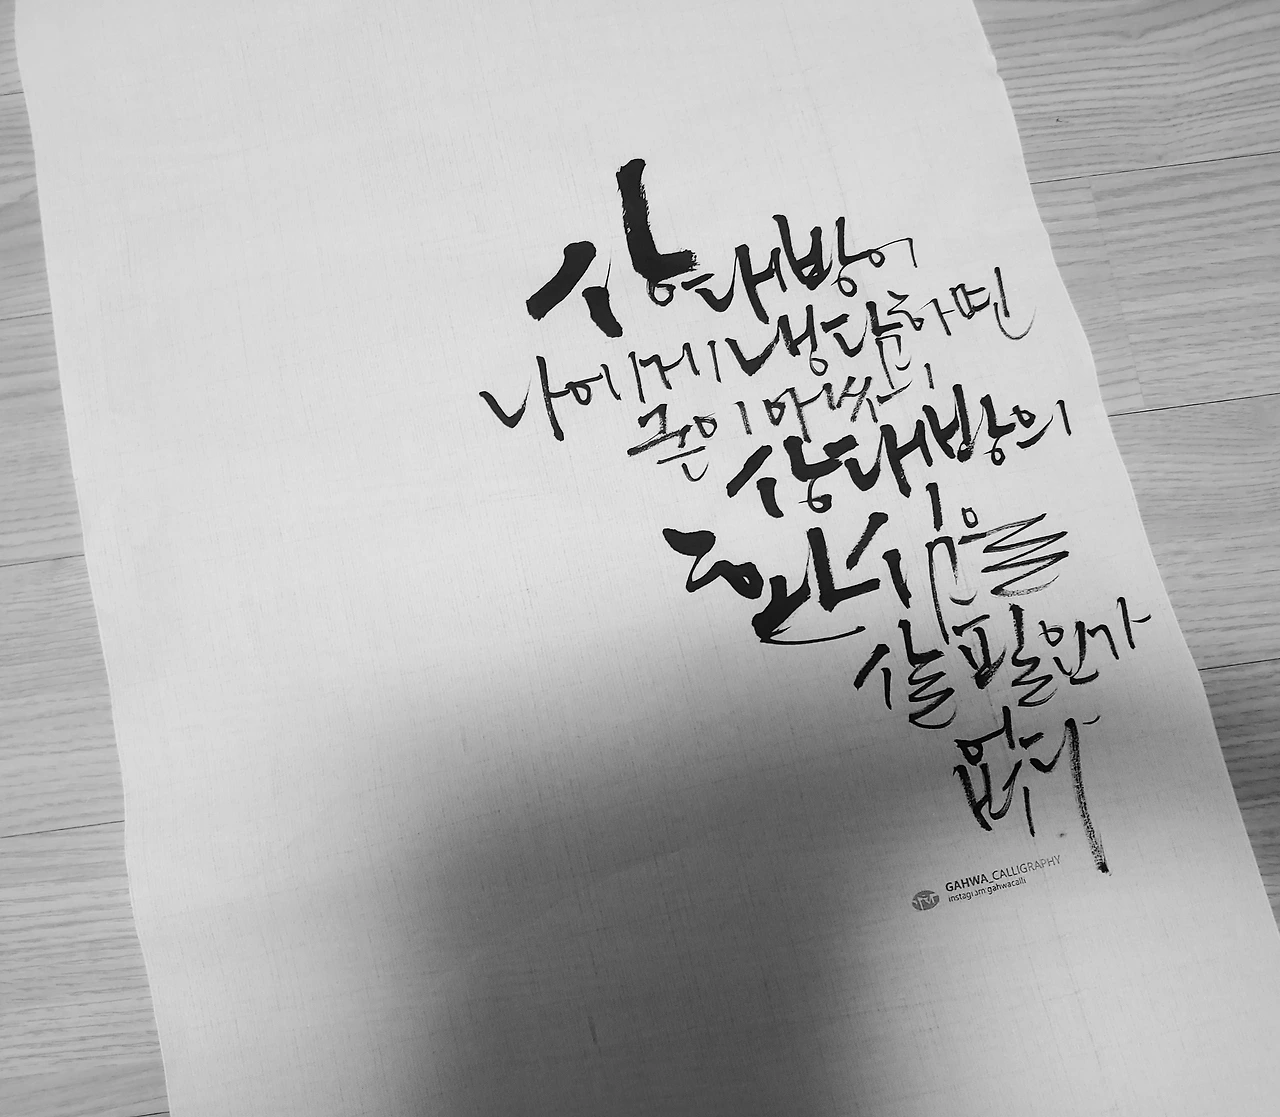 상대방이
나에게 냉담하면
굳이 애써
상대방의
환심을
살 필요가
없다
GAHWA_CALLIGRAPHY
instagram:gahwacalli